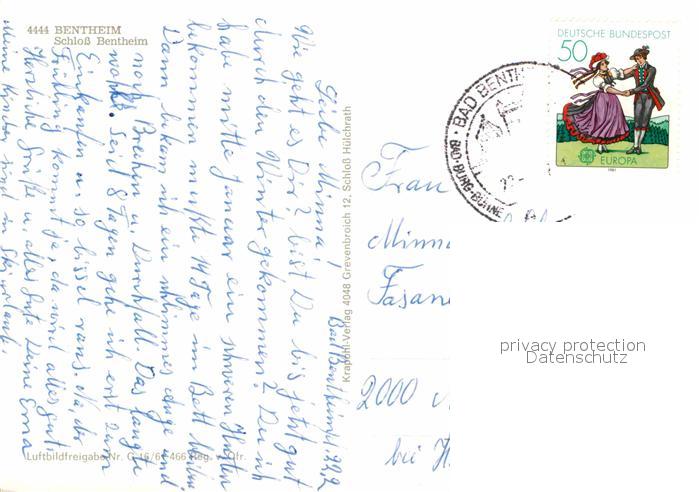 4444 BENTHEIM
Schloß Bentheim
Bad Bentheim, 22.2
Liebe Minna!
Wie geht es Dir? bist Du bis jetzt gut
durch den Winter gekommen? Du ich
habe mitte Januar ein schweren Husten
bekommen mußte 14 Tage im Bett bleiben
Dann bekam ich ein schlimmes Auge und
noch Brechen u. Durchfall. Das langte
wohl. Seit 8 Tagen gehe ich erst zum
Einkaufen u. so bissel raus. Na, der
Frühling kommt ja, da wird alles gut.
Herzliche Grüße u. alles gute Deine Erna
Meine Kinder sind in Skiurlaub.
Luftbildfreigabe Nr. G 16/6 466 Reg. v. Ofr.
Krapohl-Verlag 4048 Grevenbroich 12, Schloß Hülchrath
DEUTSCHE BUNDESPOST
50
EUROPA
1981
BAD BENTH
BAD BURG-BÜHNE
Frau
Minn
Fasan
2000
bei H
privacy protection
Datenschutz